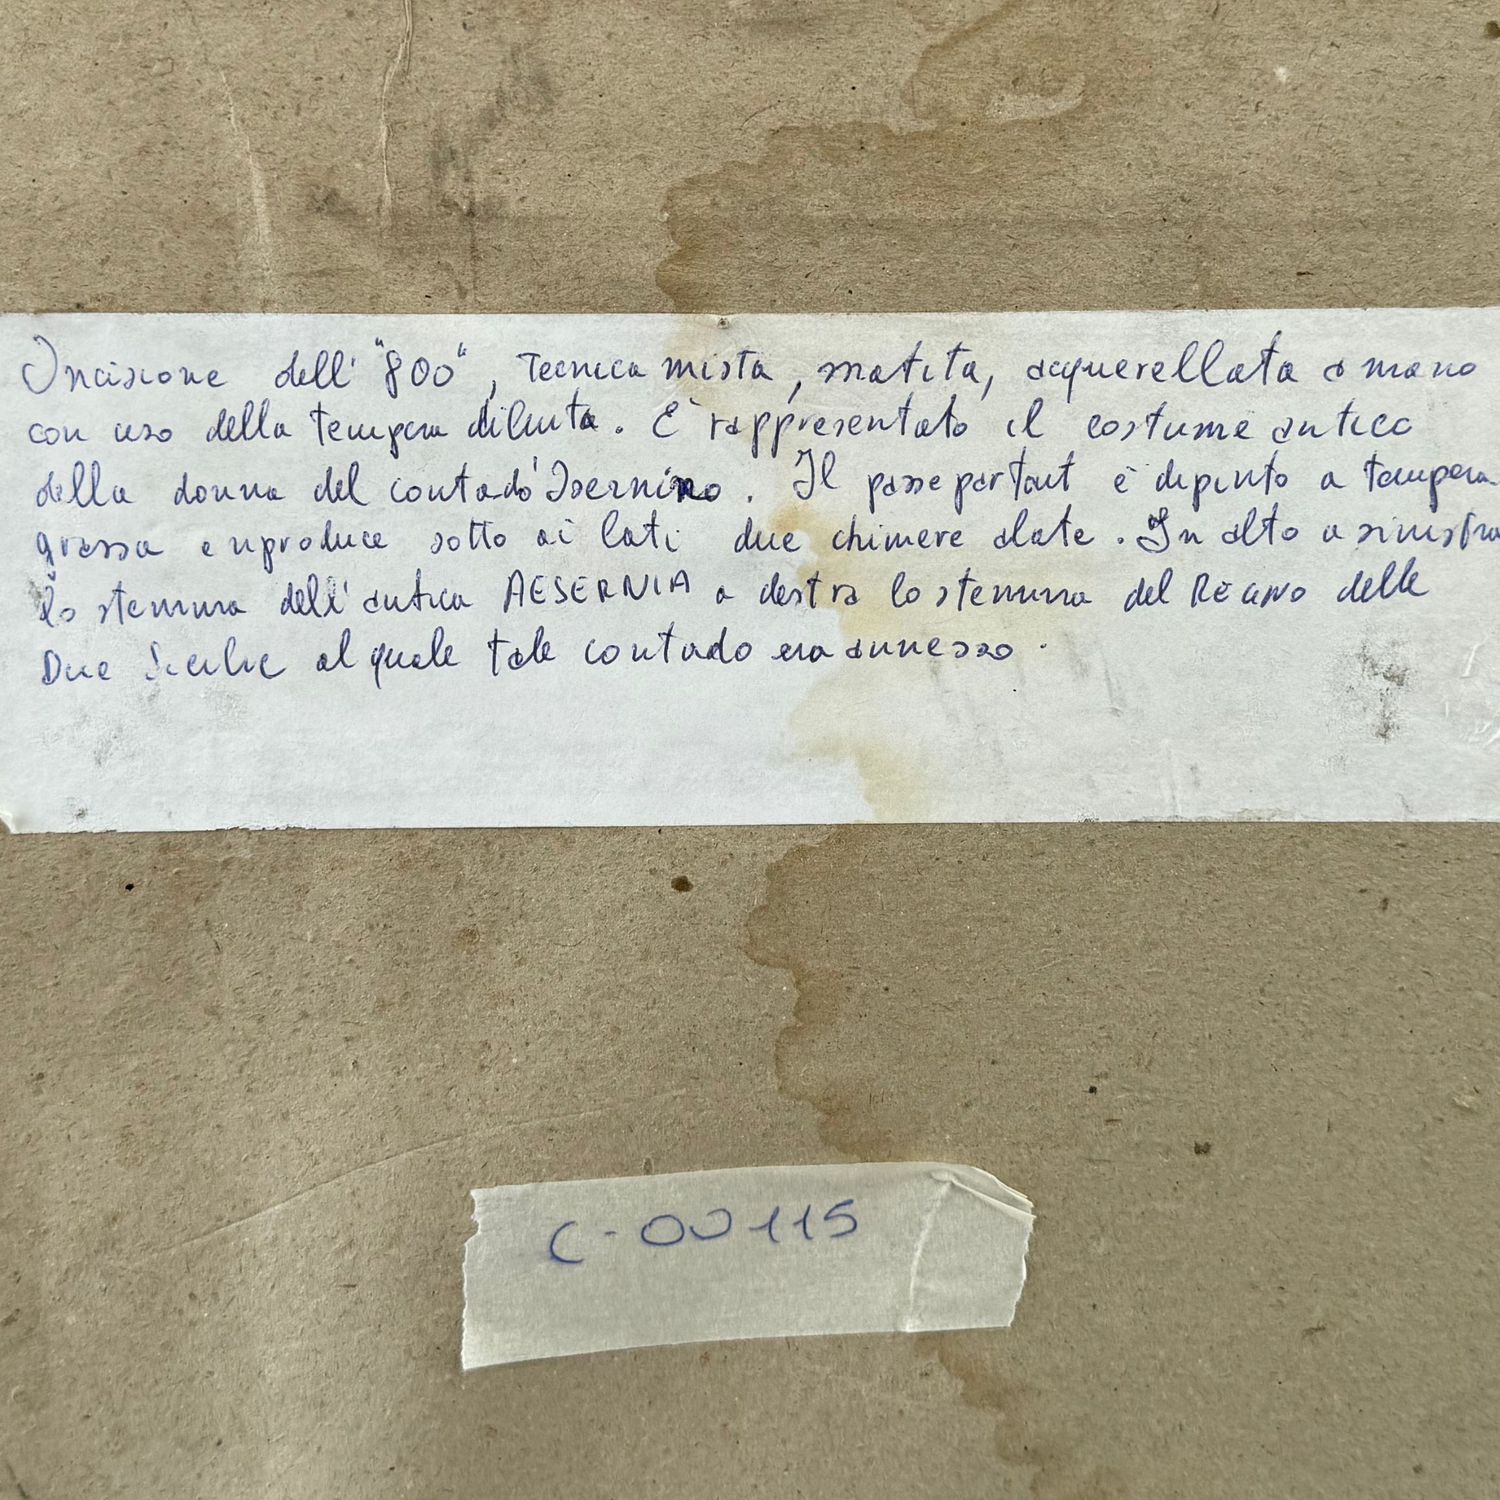 Incisione dell' "800", Tecnica mista, matita, acquerellata a mano
con uso della tempera diluita. E' rappresentato il costume antico
della donna del contado Isernino. Il passepartout è dipinto a tempera
grassa e riproduce sotto ai lati due chimere alate. In alto a sinistra
lo stemma dell'antica AESERNIA a destra lo stemma del REGNO delle
Due Sicilie al quale tale contado era annesso.
C-00115